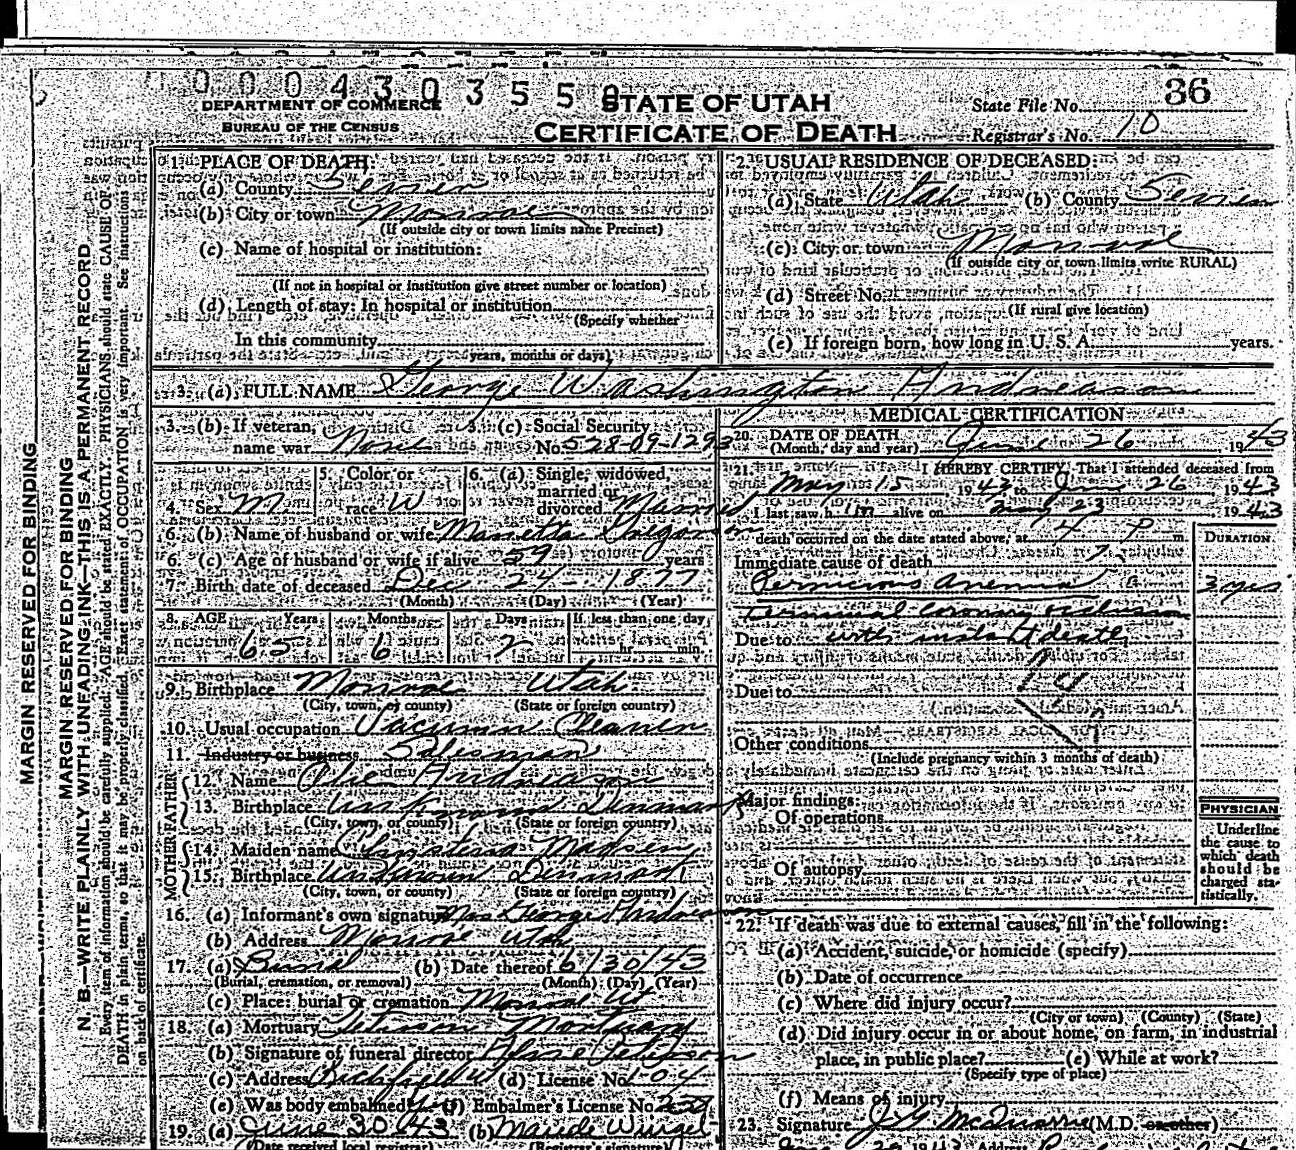 000430355
STATE OF UTAH
State File No. 36
DEPARTMENT OF COMMERCE
BUREAU OF THE CENSUS
CERTIFICATE OF DEATH
Registrar's No. 10
MARGIN RESERVED FOR BINDING
MARGIN RESERVED FOR BINDING
N. B.—WRITE PLAINLY WITH UNFADING INK—THIS IS A PERMANENT RECORD
Every item of information should be carefully supplied. AGE should be stated EXACTLY. PHYSICIANS should state CAUSE OF
DEATH in plain terms, so that it may be properly classified. Exact statement of OCCUPATION is very important. See instructions
on back of certificate.
1. PLACE OF DEATH:
(a) County Sevier
(b) City or town Monroe
(If outside city or town limits name Precinct)
(c) Name of hospital or institution:
(If not in hospital or institution give street number or location)
(d) Length of stay: In hospital or institution
(Specify whether
In this community
years, months or days)
2. USUAL RESIDENCE OF DECEASED:
(a) State Utah (b) County Sevier
(c) City or town Monroe
(If outside city or town limits write RURAL)
(d) Street No.
(If rural give location)
(e) If foreign born, how long in U. S. A. years.
3. (a) FULL NAME George Washington Andreason
3. (b) If veteran,
name war None
3. (c) Social Security
No. 528-09-1293
4. Sex M
5. Color or
race W
6. (a) Single, widowed,
married or
divorced Married
6. (b) Name of husband or wife
6. (c) Age of husband or wife if alive 59 years
7. Birth date of deceased Dec 24 1877
(Month) (Day) (Year)
8. AGE Years Months Days If less than one day
65 6 2 hr. min.
9. Birthplace Monroe Utah
(City, town, or county) (State or foreign country)
10. Usual occupation Vacuum Cleaner
11. Industry or business Salesman
FATHER
12. Name Andreason
13. Birthplace Denmark
(City, town, or county) (State or foreign country)
MOTHER
14. Maiden name Madsen
15. Birthplace Unknown Denmark
(City, town, or county) (State or foreign country)
16. (a) Informant's own signature Mrs George Andreason
(b) Address Monroe Utah
17. (a) Burial (b) Date thereof 6/30/43
(Burial, cremation, or removal) (Month) (Day) (Year)
(c) Place: burial or cremation Monroe Ut
18. (a) Mortuary Peterson Mortuary
(b) Signature of funeral director Peterson
(c) Address Richfield U (d) License No. 104
(e) Was body embalmed (f) Embalmer's License No.
19. (a) June 30 43 (b) Maude
(Date received local registrar) (Registrar's signature)
MEDICAL CERTIFICATION
20. DATE OF DEATH
(Month, day and year) June 26 1943
21. I HEREBY CERTIFY, That I attended deceased from
May 15 1943 to June 26 1943
I last saw h im alive on May 23 1943
death occurred on the date stated above, at 4 P m.
DURATION
Immediate cause of death
Pernicious Anemia 3 yrs
Terminal Coronary occlusion
Due to with instant death
Due to
Other conditions
(Include pregnancy within 3 months of death)
Major findings:
Of operations
Of autopsy
PHYSICIAN
Underline
the cause to
which death
should be
charged sta-
tistically.
22. If death was due to external causes, fill in the following:
(a) Accident, suicide, or homicide (specify)
(b) Date of occurrence
(c) Where did injury occur?
(City or town) (County) (State)
(d) Did injury occur in or about home, on farm, in industrial
place, in public place? (e) While at work?
(Specify type of place)
(f) Means of injury
23. Signature J G McQuarrie (M.D. or other)